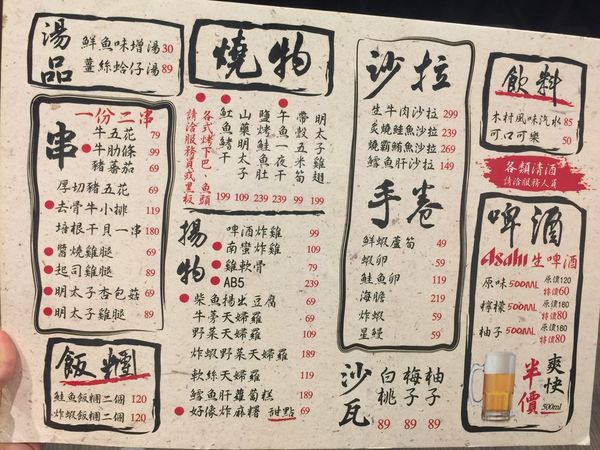 湯品
鮮魚味增湯30
薑絲蛤仔湯89
串
一份二串
牛五花 79
牛肋條 99
豬番茄 69
厚切豬五花 69
去骨牛小排 119
培根干貝一串 180
醬燒雞腿 69
起司雞腿 89
明太子杏包菇 69
明太子雞腿 89
飯糰
鮭魚飯糰二個 120
炸蝦飯糰二個 120
燒物
明太子雞翅 69
帶殼玉米筍 99
午魚一夜干 209
鹽烤鮭魚肚 239
山藥明太子 109
魟魚干 199
各式烤下巴、魚頭
請洽服務員或黑板
揚物
啤酒炸雞 99
南蠻炸雞 109
雞軟骨 79
AB5 239
柴魚揚出豆腐 69
牛蒡天婦羅 69
野菜天婦羅 109
炸蝦野菜天婦羅 189
軟絲天婦羅 169
鱈魚肝蘿蔔糕 189
好傢炸麻糬 甜點 69
沙拉
生牛肉沙拉 299
炙燒鮭魚沙拉 239
燒霸鮪魚沙拉 269
鱈魚肝沙拉 149
手卷
鮮蝦蘆筍 49
蝦卵 59
鮭魚卵 119
海膽 219
炸蝦 59
星鰻 59
沙瓦
白桃 89
梅子 89
柚子 89
飲料
木村風味汽水 85
可口可樂 50
各類清酒
請洽服務人員
啤酒
Asahi 生啤酒
原味500ML 原價120 特價60
檸檬500ML 原價160 特價80
柚子500ML 原價160 特價80
爽快
半價
500ml